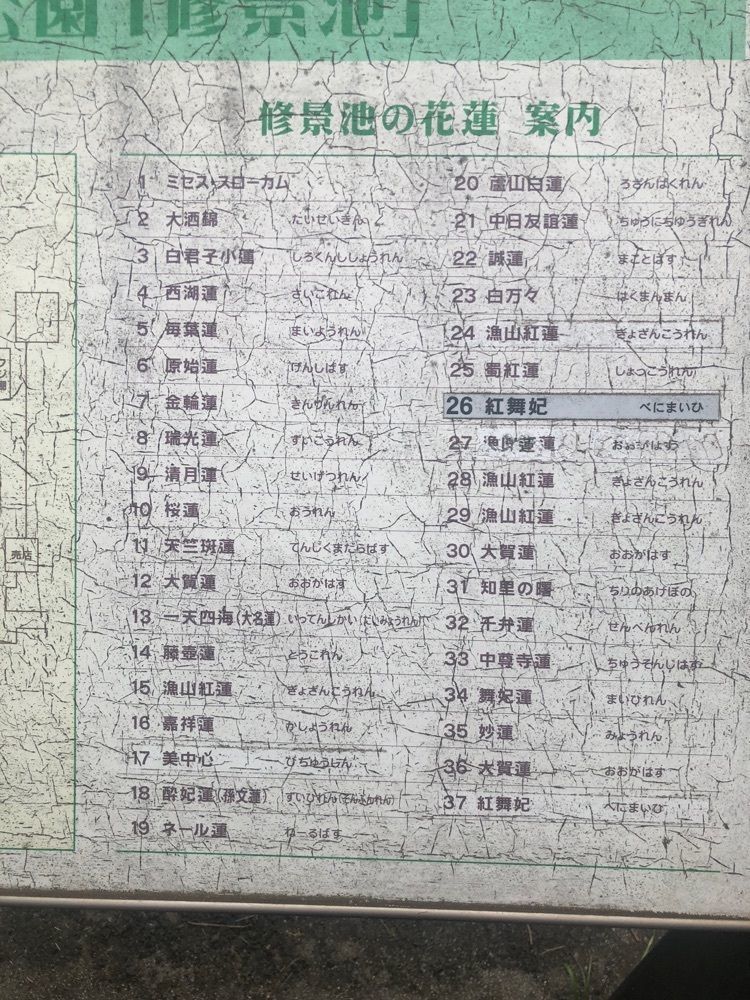 公園「修景池」
修景池の花蓮 案内
1 ミセス・スローカム
2 大洒錦 たいせいきん
3 白君子小蓮 しろくんししょうれん
4 西湖蓮 さいこれん
5 毎葉蓮 まいようれん
6 原始蓮 げんしばす
7 金輪蓮 きんりんれん
8 瑞光蓮 ずいこうれん
9 清月蓮 せいげつれん
10 桜蓮 おうれん
11 天竺斑蓮 てんじくまだらばす
12 大賀蓮 おおがはす
13 一天四海(大名蓮) いってんしかい
14 藤壺蓮 とうこれん
15 漁山紅蓮 ぎょざんこうれん
16 嘉祥蓮 かしょうれん
17 美中心 びちゅうしん
18 酔妃蓮(孫文蓮) すいひれん(そんぶんれん)
19 ネール蓮 ねーるばす
20 蘆山白蓮 ろざんはくれん
21 中日友誼蓮 ちゅうにちゆうぎれん
22 誠蓮 まことばす
23 白万々 はくまんまん
24 漁山紅蓮 ぎょざんこうれん
25 蜀紅蓮 しょっこうれん
26 紅舞妃 べにまいひ
27 おおがはす
28 漁山紅蓮 ぎょざんこうれん
29 漁山紅蓮 ぎょざんこうれん
30 大賀蓮 おおがはす
31 知里の曙 ちりのあけぼの
32 千弁蓮 せんべんれん
33 中尊寺蓮 ちゅうそんじはす
34 舞妃蓮 まいひれん
35 妙蓮 みょうれん
36 大賀蓮 おおがはす
37 紅舞妃 べにまいひ
売店